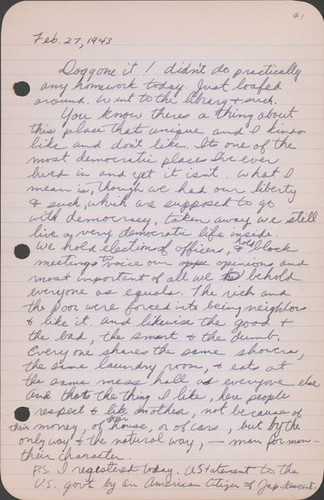 41
Feb. 27, 1943
Doggone it! I didn't do practically
any homework today. Just loafed
around. Went to the library & such.
You know theres a thing about
this place that unique and I kinda
like and don't like. Its one of the
most democratic places I've ever
lived in and yet it isn't. What I
mean is, though we had our liberty
& such, which we supposed to go
with democracy, taken away we still
live a very democratic life inside.
We hold election of officers, & hold block
meetings to voice our opinions and
most important of all we behold
everyone as equals. The rich and
the poor were forced into being neighbors
& like it. and likewise the good &
the bad, the smart & the dumb.
Everyone shares the same showers,
the same laundry room, & eats at
the same mess hall as everyone else
And thats the thing I like, here people
respect & like another, not because of
their money, of their house, or of cars, but by the
only way & the natural way, — man for man —
their character.
P.S. I registered today. A Statement to the
U.S. govt by an American Citizen of Jap descent.